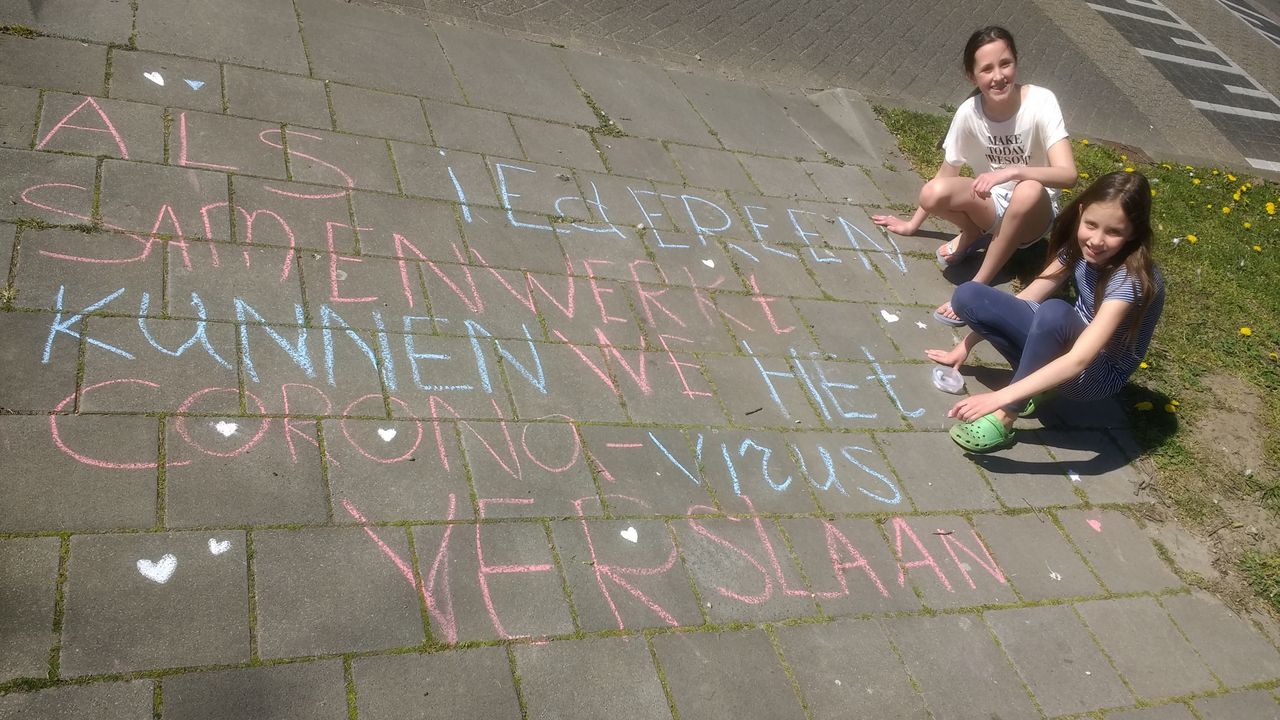 ALS iEdEREEN
SAmENWERKt
KUNNEN WE HEt
CORONA-VirUS
VERSLAAN
MAKE
TODAY
AWESOME